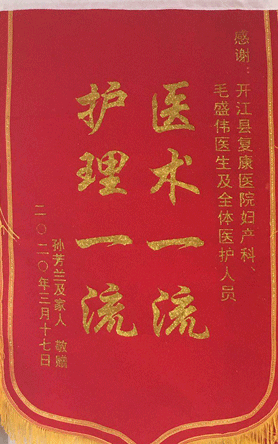 感谢：开江县复康医院妇产科、
毛盛伟医生及全体医护人员
医术一流
护理一流
孙芳兰及家人 敬赠
二〇二〇年三月十七日